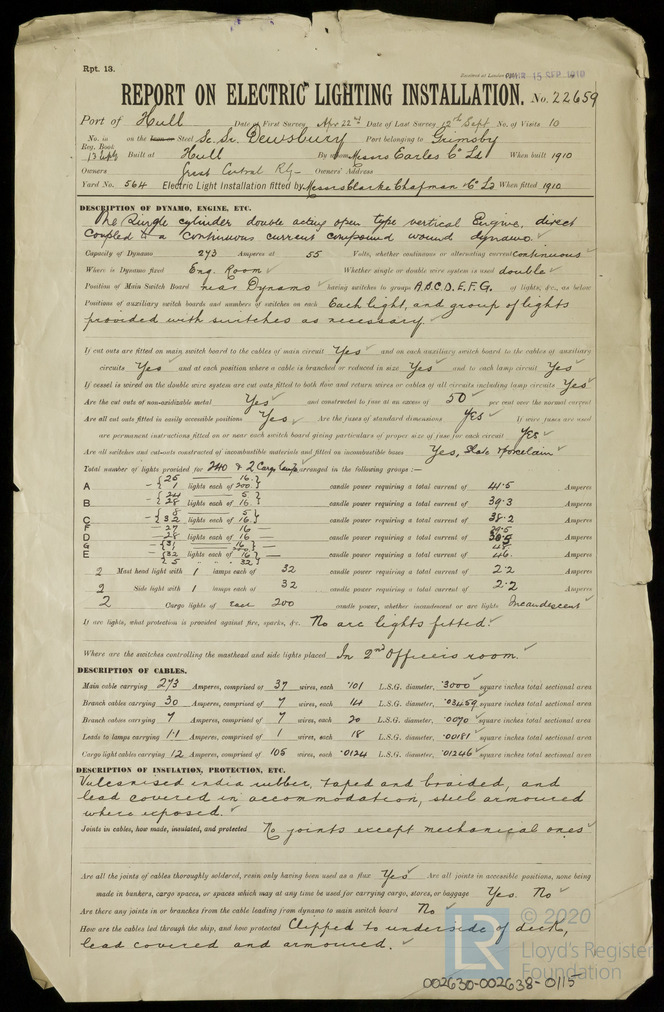 Rpt. 13.
Received at London 15 SEP 1910
REPORT ON ELECTRIC LIGHTING INSTALLATION. No. 22659
Port of Hull Date of First Survey Apr 22nd Date of Last Survey 12th Sept No. of Visits 10
No. in Reg. Book on the Iron or Steel Sc. Sr. Dewsbury Port belonging to Grimsby
13 Suppt Built at Hull By whom Messrs Earles Co Ld When built 1910
Owners Great Central Rly Owners' Address
Yard No. 564 Electric Light Installation fitted by Messrs Clarke Chapman & Co Ld When fitted 1910
DESCRIPTION OF DYNAMO, ENGINE, ETC.
One Single cylinder double acting open type vertical Engine, direct
Coupled to a continuous current compound wound dynamo.
Capacity of Dynamo 273 Amperes at 55 Volts, whether continuous or alternating current continuous
Where is Dynamo fixed Eng. Room Whether single or double wire system is used double
Position of Main Switch Board near Dynamo having switches to groups A, B, C, D, E, F, G. of lights, &c., as below
Positions of auxiliary switch boards and numbers of switches on each Each light, and group of lights
provided with switches as necessary
If cut outs are fitted on main switch board to the cables of main circuit Yes and on each auxiliary switch board to the cables of auxiliary
circuits Yes and at each position where a cable is branched or reduced in size Yes and to each lamp circuit Yes
If vessel is wired on the double wire system are cut outs fitted to both flow and return wires or cables of all circuits including lamp circuits Yes
Are the cut outs of non-oxidizable metal Yes and constructed to fuse at an excess of 50 per cent over the normal current
Are all cut outs fitted in easily accessible positions Yes Are the fuses of standard dimensions Yes If wire fuses are used
are permanent instructions fitted on or near each switch board giving particulars of proper size of fuse for each circuit Yes
Are all switches and cut-outs constructed of incombustible materials and fitted on incombustible bases Yes, Slate & Porcelain
Total number of lights provided for 240 & 2 Cargo Lamps arranged in the following groups :—
25 16
A 1 lights each of 200 candle power requiring a total current of 41.5 Amperes
24 5
B 28 lights each of 16 candle power requiring a total current of 39.3 Amperes
8 5
C 32 lights each of 16 candle power requiring a total current of 38.2 Amperes
F 27 16 39.5
D 28 lights each of 16 candle power requiring a total current of Amperes
G 31 16
E 32 lights each of 16 candle power requiring a total current of 46. Amperes
5 32
2 Mast head light with 1 lamps each of 32 candle power requiring a total current of 2.2 Amperes
2 Side light with 1 lamps each of 32 candle power requiring a total current of 2.2 Amperes
2 Cargo lights of each 200 candle power, whether incandescent or arc lights Incandescent
If arc lights, what protection is provided against fire, sparks, &c. No arc lights fitted.
Where are the switches controlling the masthead and side lights placed In 2nd Officers room.
DESCRIPTION OF CABLES.
Main cable carrying 273 Amperes, comprised of 37 wires, each .101 L.S.G. diameter, .3000 square inches total sectional area
Branch cables carrying 30 Amperes, comprised of 7 wires, each 14 L.S.G. diameter, .03459 square inches total sectional area
Branch cables carrying 7 Amperes, comprised of 7 wires, each 20 L.S.G. diameter, .0070 square inches total sectional area
Leads to lamps carrying 1.1 Amperes, comprised of 1 wires, each 18 L.S.G. diameter, .00181 square inches total sectional area
Cargo light cables carrying 12 Amperes, comprised of 105 wires, each .0124 L.S.G. diameter, .01246 square inches total sectional area
DESCRIPTION OF INSULATION, PROTECTION, ETC.
Vulcanised india rubber, taped and braided, and
lead covered in accommodation, steel armoured
where exposed.
Joints in cables, how made, insulated, and protected No joints except mechanical ones
Are all the joints of cables thoroughly soldered, resin only having been used as a flux Yes Are all joints in accessible positions, none being
made in bunkers, cargo spaces, or spaces which may at any time be used for carrying cargo, stores, or baggage Yes. No
Are there any joints in or branches from the cable leading from dynamo to main switch board No
How are the cables led through the ship, and how protected Clipped to underside of deck,
lead covered and armoured.
LR © 2020
Lloyd's Register
Foundation
002630-002638-0115